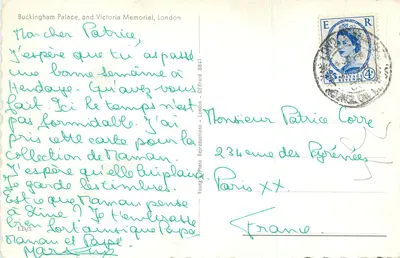 Buckingham Palace, and Victoria Memorial, London
Mon cher Patrice,
J'espère que tu as passé
une bonne semaine à
Hendaye. Qu'avez vous
fait. Ici le temps n'est
pas formidable. J'ai
pris cette carte pour la
Collection de Maman.
J'espère qu'elle lui plaira
Je garde les timbres.
Est ce que Maman pense
à Line? Je t'embrasse
bien fort ainsi que Papa
Maman et
E R
Monsieur Patrice Torre
234 rue des Pyrénées
Paris XX.
France